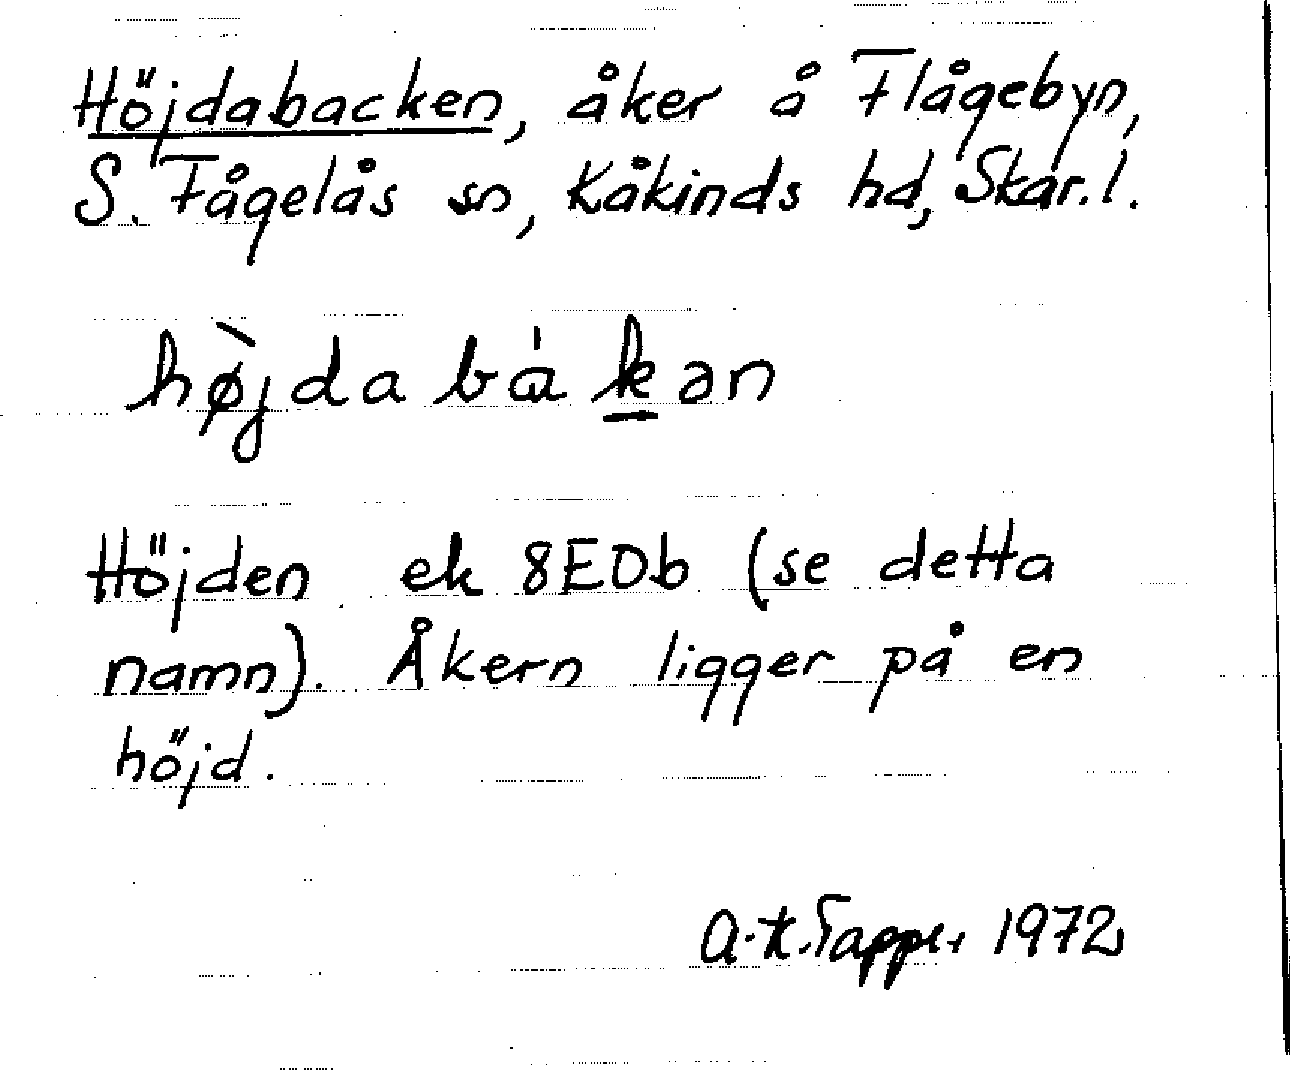 Höjdabacken, åker å Flågebyn,
S. Fågelås sn, Kåkinds hd, Skar.l.
hø̀jdabákən
Höjden ek 8E0b (se detta
namn). Åkern ligger på en
höjd.
A-K. Tapper 1972